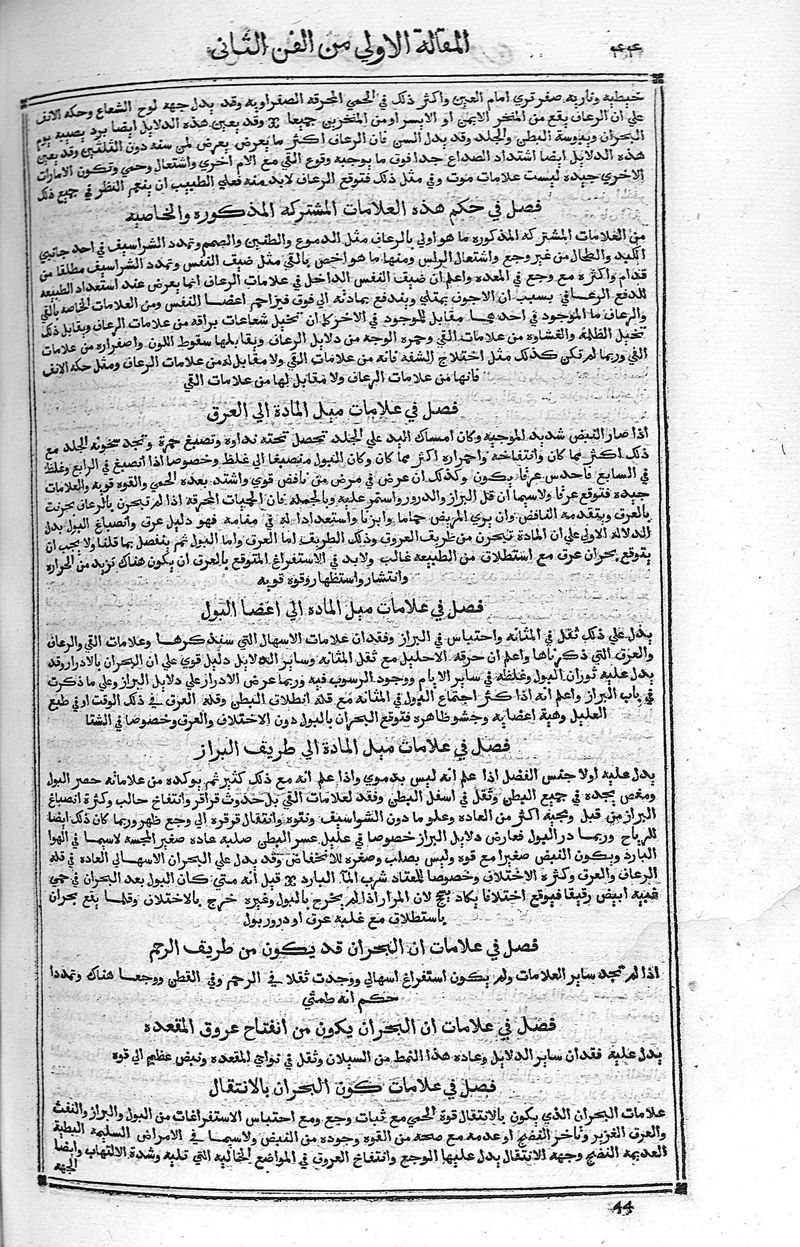 ٤٤
المقالة الاولي من الفن الثاني
خيطيه وناريه صفر تري امام العين واكثر ذلك في الحمي المحرقه الصفراويه وقد يدل جهه لوح الشعاع وحكه الانف
علي ان الرعاف يقع من المنخر الايمن او الايسر او من المنخرين جميعا وقد يعين هذه الدلايل ايضا برد يصيبه يوم
البحران ويبوسة البطن والجلد وقد يدل السن فان الرعاف اكثر ما يعرض يعرض لمن سنه دون الثلثين وقد يعين
هذه الدلايل ايضا اشتداد الصداع جدا فوق ما يوجبه وقوع القي مع الام اخري واشتعال وحمي وتكون الامارات
الاخري جيده ليست علامات موت وفي مثل ذلك فتوقع الرعاف لابد منه فعلي الطبيب ان ينعم النظر في جميع ذلك
فصل في حكم هذه العلامات المشتركه المذكوره والخاصيه
من العلامات المشتركه المذكوره ما هو اولي بالرعاف مثل الدموع والطنين والصمم وتمدد الشراسيف في احد جانبي
الكبد والطحال من غير وجع واشتعال الراس ومنها ما هو اخص بالقي مثل ضيق النفس وتمدد الشراسيف مطلقا من
قدام واكثره مع وجع في المعده واعلم ان ضيق النفس الداخل في علامات الرعاف انما يعرض عند استعداد الطبيعه
للدفع الرعافي بسبب ان الاجوف يمتلي ويندفع بمادته الي فوق فيزاحم اعضا النفس ومن العلامات الخاصه بالقي
والرعاف ما الموجود في احدهما مقابل للموجود في الاخر كما ان تخيل شعاعات براقه من علامات الرعاف ويقابل ذلك
تخيل الظلمه والغشاوه من علامات القي وحمره الوجه من دلايل الرعاف ويقابلها سقوط اللون واصفراره من علامات
القي وربما لم تكن كذلك مثل اختلاج الشفه فانه من علامات القي ولا مقابل له من علامات الرعاف ومثل حكه الانف
فانها من علامات الرعاف ولا مقابل لها من علامات القي
فصل في علامات ميل المادة الي العرق
اذا صار النبض شديد الموجيه وكان امساك اليد علي الجلد يحصل تحته نداوه وتصبغ حمرة وتجد سخونه الجلد مع
ذلك اكثر مما كان وانتفاخه واحمراره اكثر مما كان وكان البول منصبغا الي غلظ وخصوصا اذا انصبغ في الرابع وغلظ
في السابع فاحدس عرقا يكون وكذلك ان عرض في مرض من نافض قوي واشتد بعده الحمي والقوه قويه والعلامات
جيده فتوقع عرقا ولاسيما ان قل البراز والدرور واستمر عليه وبالجمله فان الحميات المحرقه اذا لم تبحرن بالرعاف بحرنت
بالعرق ويتقدمه النافض وان يري المريض حماما وابزنا واستعدادا له في منامه فهو دليل عرق وانصباغ البول يدل
الدلاله الاولي علي ان المادة تبحرن من طريف العروق وذلك الطريف اما العرق واما البول ثم ينفصل بما قلنا ولا يجب ان
يتوقع بحران عرق مع استطلاق من الطبيعه غالب ولابد في الاستفراغ المتوقع بالعرق ان يكون هناك تزيد من الحراره
وانتشار واستظهار وقوه قويه
فصل في علامات ميل الماده الي اعضا البول
يدل علي ذلك ثقل في المثانه واحتباس في البراز وفقدان علامات الاسهال التي سنذكرها وعلامات القي والرعاف
والعرق التي ذكرناها واعلم ان حرقه الاحليل مع ثقل المثانه وساير الدلايل دليل قوي علي ان البحران بالادرار وقد
يدل عليه ثوران البول وغلظه في ساير الايام ووجود الرسوب فيه وربما عرض الادرار علي دلايل البراز وعلي ما ذكرت
في باب البراز واعلم انه اذا كثر اجتماع البول في المثانه مع قله انطلاق البطن وقله العرق في ذلك الوقت او في طبع
العليل وهية اعضايه وجشو ظاهره فتوقع البحران بالبول دون الاختلاف والعرق وخصوصا في الشتا
فصل في علامات ميل المادة الي طريف البراز
يدل عليه اولا جنس الفضل اذا علم انه ليس بدموي واذا علم انه مع ذلك كثير ثم يوكده من علاماته حصر البول
ومغص يجده في جميع البطن وثقل في اسفل البطن وفقد لعلامات القي بل حدوث قراقر وانتفاخ حالب وكثرة انصباغ
البراز من قبل ومجيه اكثر من العاده وعلو ما دون الشراسيف ونتوه وانتقال قرقره الي وجع ظهر وربما كان ذلك ايضا
للرياح وربما در البول فعارض دلايل البراز خصوصا في عليل عسر البطن صلبه عاده صغير المجسه لاسيما في الهوا
البارد ويكون النبض صغيرا مع قوه وليس بصلب وصغره للانخفاض وقد يدل علي البحران الاسهالي العاده في قله
الرعاف والعرق وكثرة الاختلاف وخصوصا للمعتاد شرب المآ البارد قيل انه متي كان البول بعد البحران في حمي
غبيه ابيض رقيقا فيوقع اختلافا يكاد يسحج لان المرار اذا لم يخرج بالبول وغيره خرج بالاختلاف وقلما يقع بحران
باستطلاق مع غلبه عرق او درور بول
فصل في علامات ان البحران قد يكون من طريف الرحم
اذا لم تجد ساير العلامات ولم يكون استفراغ اسهالي ووجدت ثقلا في الرحم وفي القطن ووجعا هناك وتمددا
حكم انه طمثي
فصل في علامات ان البحران يكون من انفتاح عروق المقعده
يدل عليه فقدان ساير الدلايل وعاده هذا النمط من السيلان وثقل في نواحي المقعده ونبض عظيم الي قوه
فصل في علامات كون البحران بالانتقال
علامات البحران الذي يكون بالانتقال قوة الحمي مع ثبات وجع ومع احتباس الاستفراغات من البول والبراز والنفث
والعرق الغزير وتاخر النضج او عدمه مع صحه من القوه وجوده من النبض ولاسيما في الامراض السليمه البطية
العديمه النضج وجهه الانتقال يدل عليها الوجع وانتفاخ العروق في المواضع الخاليه التي تليه وشدة الالتهاب وايضا
الجهه
44